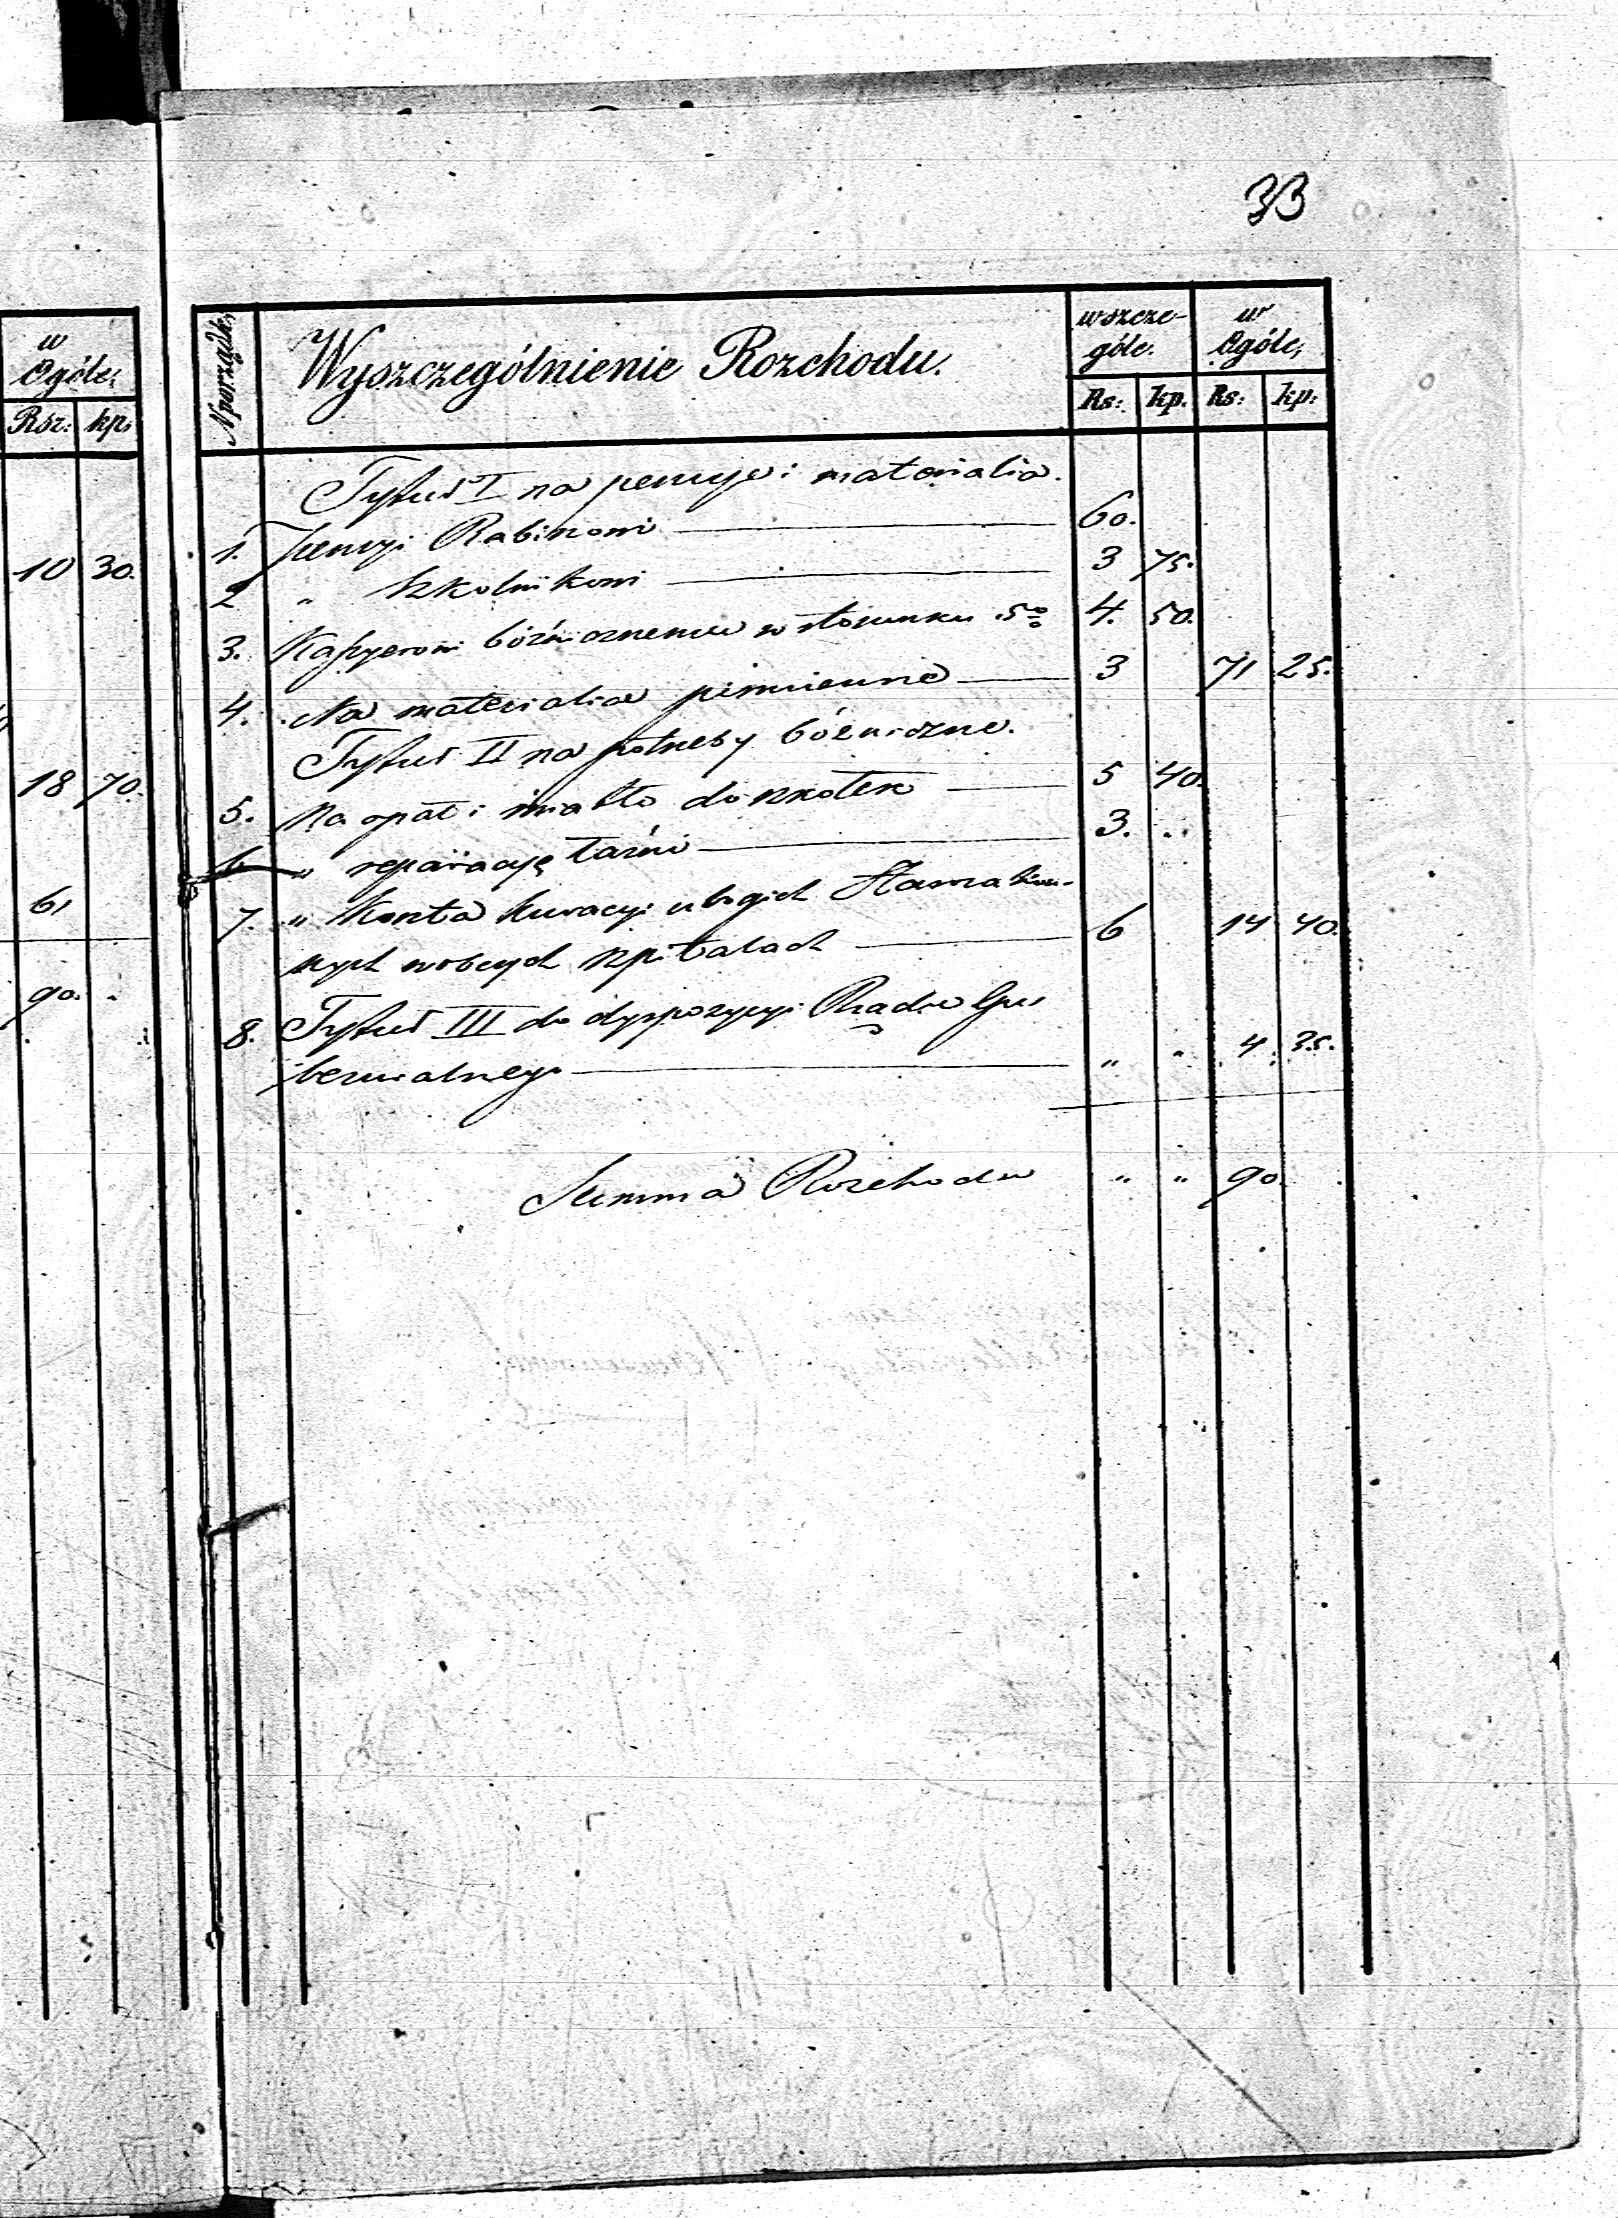 33
w Ogóle;
Rsr: kp.
10 30.
18 70.
61
90. "
N porządk; Wyszczególnienie Rozchodu. w szcze- w
góle. Ogóle;
Rs: kp. Rs: kp:
Tytuł I na pensyje i materialia.
1. Pensyi Rabinowi 60.
2 " Szkolnikowi 3 75.
3. Kassyerowi bóźnicznemu w stosunku 5% 4. 50.
4. Na materialia piśmienne 3 71 25.
Tytuł II na potrzeby bóźniczne.
5. Na opał i do szkołek 5 40.
6 " reparacyę łaźni 3. "
7. " Koszta kuracyi ubogich Starozakon-
nych w obcych szpitalach 6 14 40.
8. Tytuł III do dyspozycyi Rządu Gu
bernialnego " " 4 35.
Summa Rozchodu " " 90.